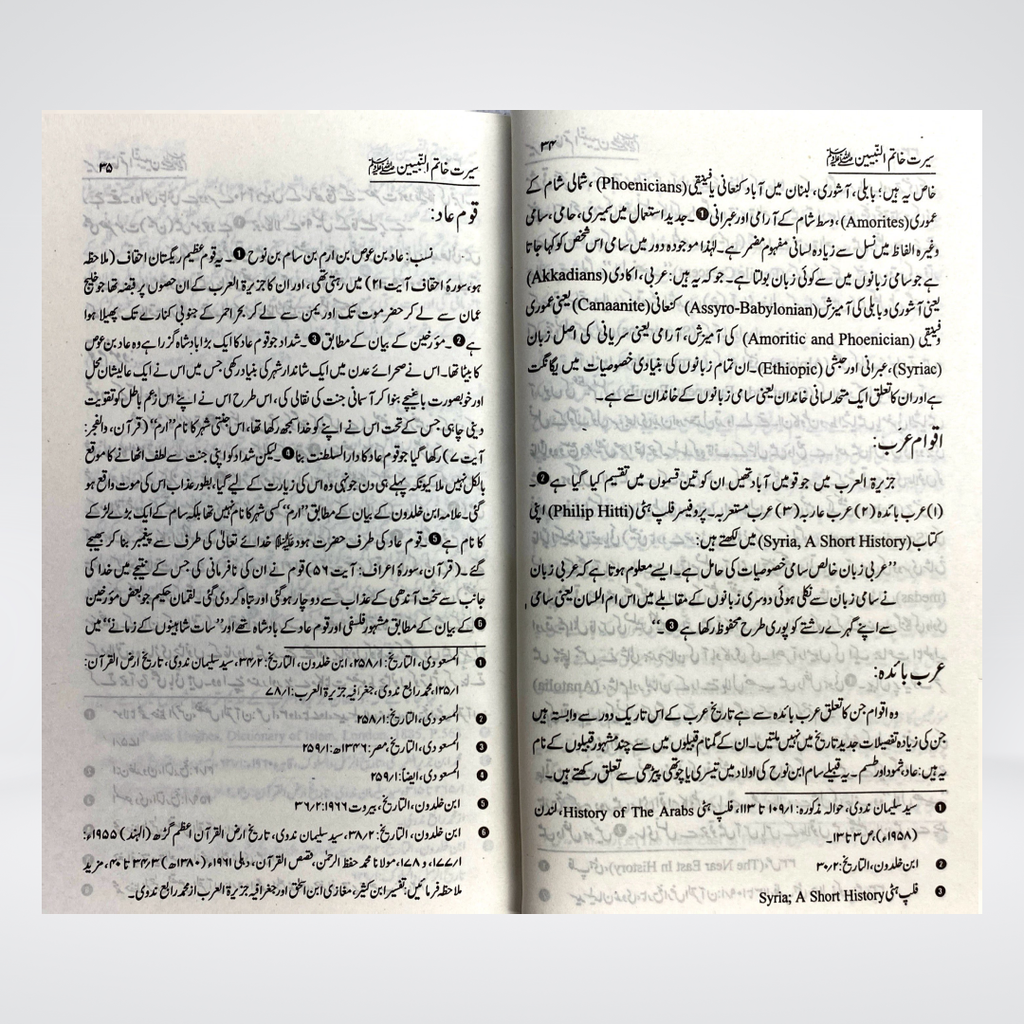 ۳۴
سیرت خاتم النبیین ﷺ
خاص یہ ہیں؛ بابلی، آشوری، لبنان میں آباد کنعانی یا فنیقی (Phoenicians)، شمالی شام کے
عموری (Amorites)، وسط شام کے آرامی اور عبرانی ❶۔ جدید استعمال میں سمیری، حامی، سامی
وغیرہ الفاظ میں نسل سے زیادہ لسانی مفہوم مضمر ہے۔ لہٰذا موجودہ دور میں سامی اس شخص کو کہا جاتا
ہے جو سامی زبانوں میں سے کوئی زبان بولتا ہے۔ جو کہ یہ ہیں: عربی، اکادی (Akkadians)
یعنی آشوری و بابلی کی آمیزش (Assyro-Babylonian) کنعانی (Canaanite) یعنی عموری
و فنیقی (Amoritic and Phoenician) کی آمیزش، آرامی یعنی سریانی کی اصل زبان
(Syriac)، عبرانی اور حبشی (Ethiopic)۔ ان تمام زبانوں کی بنیادی خصوصیات میں یگانگت
ہے اور ان کا تعلق ایک متحد لسانی خاندان یعنی سامی زبانوں کے خاندان سے ہے۔
اقوام عرب:
جزیرۃ العرب میں جو قومیں آباد تھیں ان کو تین قسموں میں تقسیم کیا گیا ہے ❷۔
(۱) عرب بائدہ (۲) عرب عاربہ (۳) عرب مستعربہ۔ پروفیسر فلپ ہٹی (Philip Hitti) اپنی
کتاب (Syria, A Short History) میں لکھتے ہیں:
”عربی زبان خالص سامی خصوصیات کی حامل ہے۔ ایسے معلوم ہوتا ہے کہ عربی زبان
نے سامی زبان سے نکلی ہوئی دوسری زبانوں کے مقابلے میں اس ام اللسان یعنی سامی
سے اپنے گہرے رشتے کو پوری طرح محفوظ رکھا ہے ❸۔“
عرب بائدہ:
وہ اقوام جن کا تعلق عرب بائدہ سے ہے تاریخ عرب کے اس تاریک دور سے وابستہ ہیں
جن کی زیادہ تفصیلات جدید تاریخ میں نہیں ملتیں۔ ان کے گمنام قبیلوں میں سے چند مشہور قبیلوں کے نام
یہ ہیں: عاد، ثمود اور طسم۔ یہ قبیلے سام ابن نوح کی اولاد میں تیسری یا چوتھی پیڑھی سے تعلق رکھتے ہیں۔
❶ سید سلیمان ندوی، حوالہ مذکورہ: ۱/۱۰۹ تا ۱۱۳، فلپ ہٹی History of The Arabs، لندن
(۱۹۵۸ء)، ص ۳ تا ۱۳۔
❷ ابن خلدون، التاریخ: ۲/۳۰
❸ فلپ ہٹی Syria; A Short History
۳۵
سیرت خاتم النبیین ﷺ
قوم عاد:
نسب: عاد بن عوص بن ارم بن سام بن نوح ❶۔ یہ قوم عظیم ریگستان احقاف (ملاحظہ
ہو، سورۂ احقاف آیت ۲۱) میں رہتی تھی، اور ان کا جزیرۃ العرب کے ان حصوں پر قبضہ تھا جو خلیج
عمان سے لے کر حضر موت تک اور یمن سے لے کر بحر احمر کے جنوبی کنارے تک پھیلا ہوا
ہے ❷۔ مؤرخین کے بیان کے مطابق ❸۔ شداد جو قوم عاد کا ایک بڑا بادشاہ گزرا ہے وہ عاد بن عوص
کا بیٹا تھا۔ اس نے صحرائے عدن میں ایک شاندار شہر کی بنیاد رکھی جس میں اس نے ایک عالیشان محل
اور خوبصورت باغیچے بنوا کر آسمانی جنت کی نقالی کی، اس طرح اس نے اپنے اس زعم باطل کو تقویت
دینی چاہی جس کے تحت اس نے اپنے کو خدا سمجھ رکھا تھا، اس جنتی شہر کا نام ”ارم“ (قرآن، والفجر:
آیت ۷) رکھا گیا جو قوم عاد کا دارالسلطنت بنا ❹۔ لیکن شداد کو اپنی جنت سے لطف اٹھانے کا موقع
بالکل نہیں ملا کیونکہ پہلے ہی دن جونہی وہ اس کی زیارت کے لیے گیا، بطور عذاب اس کی موت واقع ہو
گئی۔ علامہ ابن خلدون کے بیان کے مطابق ”ارم“ کسی شہر کا نام نہیں تھا بلکہ سام کے ایک بڑے لڑکے
کا نام ہے ❺۔ قوم عاد کی طرف حضرت ہود علیہ السلام خدائے تعالیٰ کی طرف سے پیغمبر بنا کر بھیجے
گئے۔ (قرآن، سورۂ اعراف: آیت ۵۶) قوم نے ان کی نافرمانی کی جس کے نتیجے میں خدا کی
جانب سے سخت آندھی کے عذاب سے دوچار ہوگئی اور تباہ کر دی گئی۔ لقمان حکیم جو بعض مؤرخین
❻ کے بیان کے مطابق مشہور فلسفی اور قوم عاد کے بادشاہ تھے اور ”سات شاہینوں کے زمانے“ میں
❶ المسعودی، التاریخ: ۱/۲۵۸، ابن خلدون، التاریخ: ۲/۳۴، سید سلیمان ندوی، تاریخ ارض القرآن:
۱/۱۲۵، محمد رابع ندوی، جغرافیہ جزیرۃ العرب: ۱/۷۸
❷ المسعودی، التاریخ: ۱/۲۵۸
❸ المسعودی، التاریخ، مصر: ۱۳۴۶ھ: ۱/۲۵۹
❹ المسعودی، ایضاً: ۱/۲۵۹
❺ ابن خلدون، التاریخ، بیروت ۱۹۶۶: ۲/۳۶
❻ ابن خلدون، التاریخ: ۲/۳۸، سید سلیمان ندوی، تاریخ ارض القرآن اعظم گڑھ (الہند) ۱۹۵۵ء:
۱/۱۷۷، و ۱۷۸، مولانا محمد حفظ الرحمٰن، قصص القرآن، دہلی ۱۹۶۱ء (۱۳۸۰ھ) ۳/۳۴ تا ۴۰، مزید
ملاحظہ فرمائیں: تفسیر ابن کثیر، مغازی ابن اسحٰق اور جغرافیہ جزیرۃ العرب از محمد رابع ندوی۔